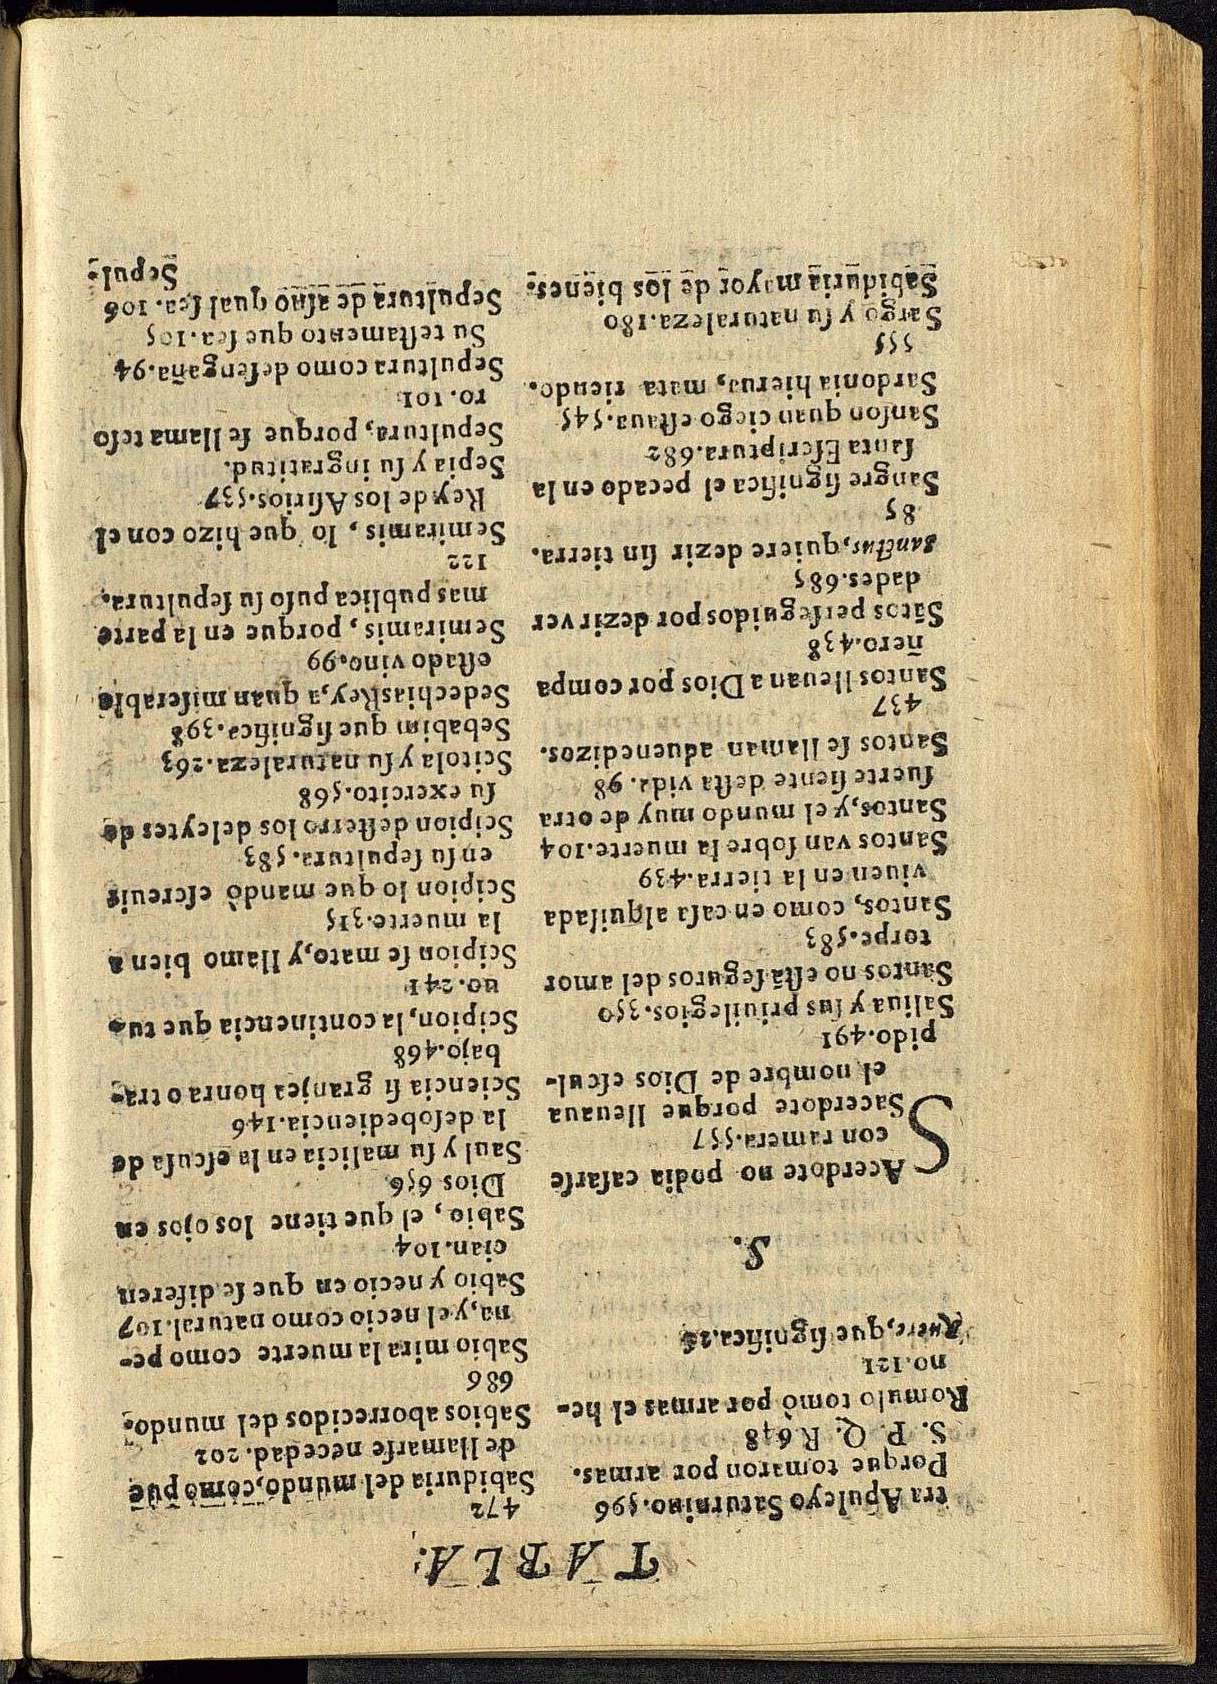 TABLA.
tra Apuleyo Saturnino.596
Porque tomaron por armas.
S. P. Q. R.648
Romulo tomò por armas el he-
no.121
que ſignifica.
S.
SAcerdote no podia caſarſe
con ramera.557
Sacerdote porque lleuaua
el nombre de Dios eſcul-
pido.491
Saliua y ſus priuilegios.350
Santos no eſtã ſeguros del amor
torpe.583
Santos, como en caſa alquilada
viuen en la tierra.439
Santos van ſobre la muerte.104
Santos, y el mundo muy de otra
ſuerte ſiente deſta vida. 98
Santos ſe llaman aduenedizos.
437
Santos lleuan a Dios por compa
ñero.438
Sãtos perſeguidos por dezir ver
dades.685
Sanctus, quiere dezir ſin tierra.
85
Sangre ſignifica el pecado en la
ſanta Eſcriptura.682
Sanſon quan ciego eſtaua.545
Sardonia hierua, mata riendo.
555
Sargo y ſu naturaleza.180
Sabiduria mayor de los bienes.
472
Sabiduria del mundo, como pue
de llamarſe necedad.202
Sabios aborrecidos del mundo.
686
Sabio mira la muerte como pe-
na, y el necio como natural.107
Sabio y necio en que ſe diferen
cian.104
Sabio, el que tiene los ojos en
Dios 656
Saul y ſu malicia en la eſcuſa de
la deſobediencia.146
Sciencia ſi granjea honra o tra-
bajo.468
Scipion, la continencia que tu-
uo.241
Scipion ſe mato, y llamo bien a
la muerte.315
Scipion lo que mandò eſcreuir
en ſu ſepultura.583
Scipion deſterro los deleytes de
ſu exercito.568
Scitola y ſu naturaleza.263
Sebabim que ſignifica.398
Sedechias Rey, a quan miſerable
eſtado vino.99
Semiramis, porque en la parte
mas publica puſo ſu ſepultura.
122
Semiramis, lo que hizo con el
Rey de los Aſirios.537
Sepia y ſu ingratitud.
Sepultura, porque ſe llama teſo
ro.101
Sepultura como deſengaña.94
Su teſtamento que ſea.105
Sepultura de aſno qual ſea.106
Sepul-